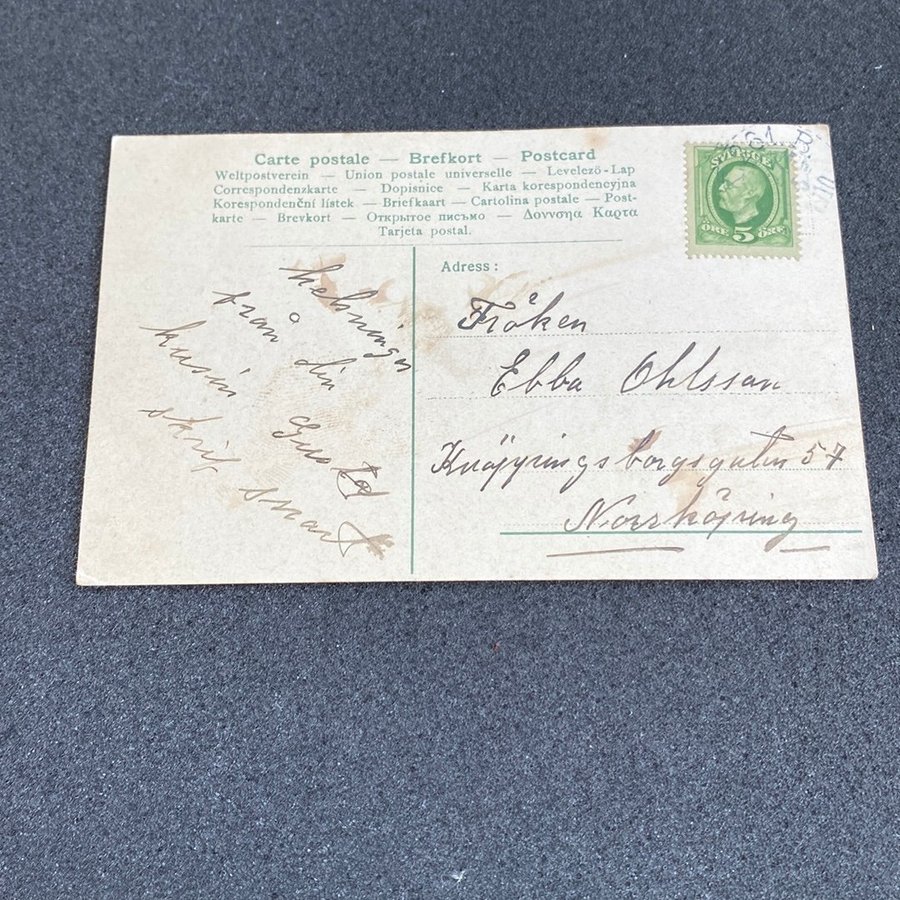 Carte postale — Brefkort — Postcard
Weltpostverein — Union postale universelle — Levelező-Lap
Correspondenzkarte — Dopisnice — Karta korespondencyjna
Korespondenční lístek — Briefkaart — Cartolina postale — Post-
karte — Brevkort — Открытое письмо — Δοννσηα Καρτα
Tarjeta postal.
SVERIGE
ÖRE 5 ÖRE
Adress:
helsningar
från din
kusin Gusta
skrif snart
Fröken
Ebba Ohlsson
Knäppingsborgsgatan 57
Norrköping